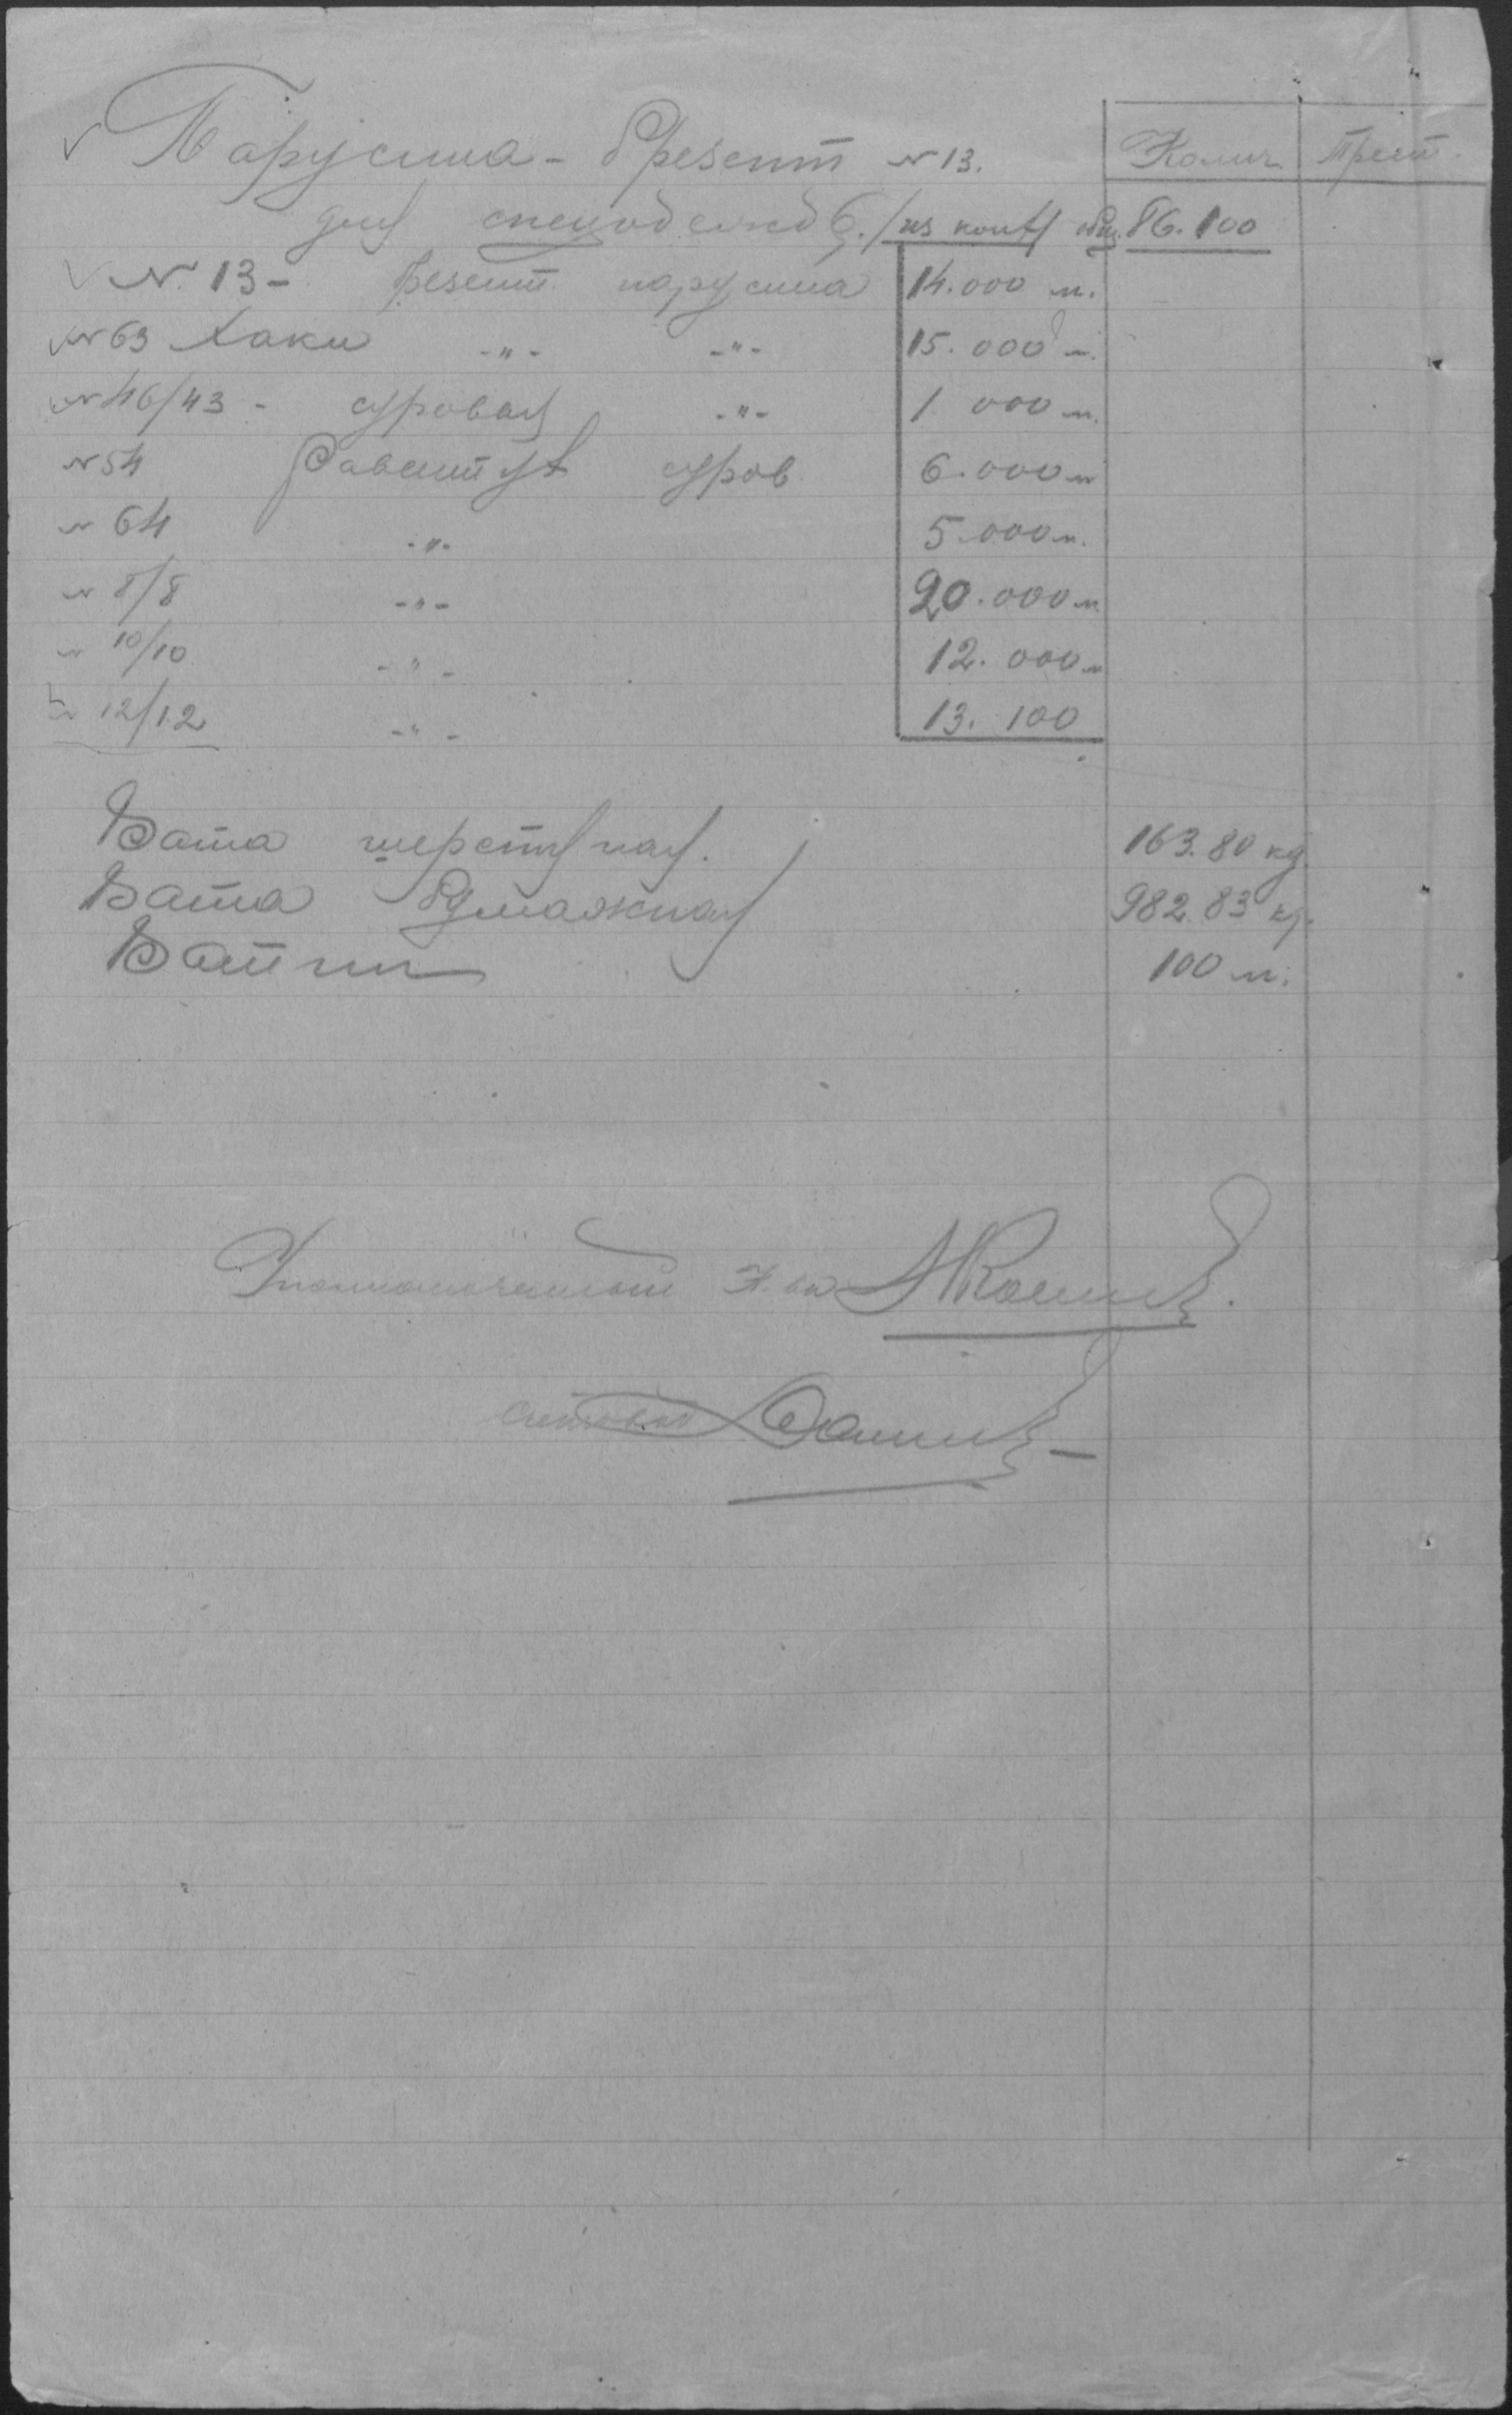 Парусина - брезент №13. Колич Трест.
для спецодежд б. / из конт общ. 86.100
№ 13 - брезент парусина 14.000 м.
№ 63 Хаки -"- -"- 15.000 м.
№ 46/43 - суровая -"- 1 000 м.
№ 54 Равентух суров 6.000 м
№ 64 -"- 5.000 м.
№ 8/8 -"- 20.000 м.
№ 10/10 -"- 12.000 м
№ 12/12 -"- 13.100
Вата шерстяная. 163.80 кg.
Вата бумажная 982.83 кg.
Ватин 100 м.
Уполномоченный
Счетовод